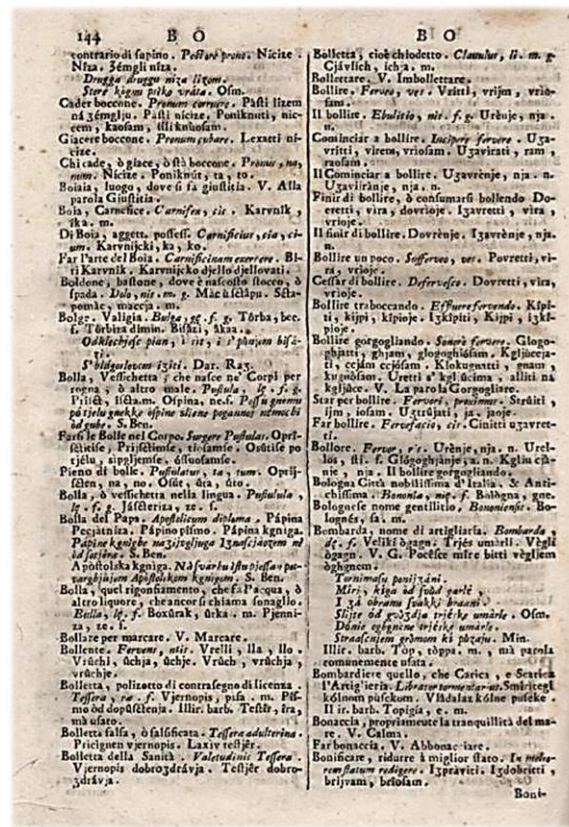 144 B O
contrario di supino. Pectore prono. Nicize.
Niza. Zémgli niza.
Drugga druggu niza lizem.
Stere kigni pilko vráta. Osm.
Cader boccone. Pronum corruere. Pàsti lizem
ná zémglju. Pàsti nicize. Poniknuti, nic-
cem, kaosam, illi knùosam.
Giacere boccone. Pronum cubare. Lexatti ni-
cize.
Chi cade, ò giace, ò stà boccone. Pronus, na,
num. Nicize. Poniknùt, ta, to.
Boiaia, luogo, dove si fa giustitia. V. Alla
parola Giustitia.
Boia, Carnefice. Carnifex, cis. Karvnik,
ika. m.
Di Boia, aggett. possess. Carnificius, cia, ci-
um. Karvnijcki, ka, ko.
Far l'arte del Boia. Carnificinam exercere. Bi-
ti Karvnik. Karvnijcko djello djellovati.
Boldone, bastone, dove è nascosto stocco, ò
spada. Dolo, nis. m. g. Màc ù sctàpu. Scta-
pomàc, maccja. m.
Bolge. Valigia. Bulga, gę. f. g. Tòrba, bee.
f. Tòrbiza dimin. Bisázi, ákaa.
Odklechjese pian, i sit, i s'punjem bisá-
zi.
S'blagoslovem iziti. Dar. Raz.
Bolla, Vesschetta, che nasce ne' Corpi per
rogna, ò altro male. Pustula, lę. f. g.
Priscť, iscta. m. Ospina, ne. f.
pó tjelu gnekke ospine sliene pogannè nèmochi
od gube. S. Ben.
Farsi le Bolle nel Corpo. Surgere Pustulas. Oprì-
sctitise, Prijsctimse, tiosamse. Osùtise po
tjelu, sipgljemse, ossuosamse.
Pieno di bolle. Pustulatus, ta, tum. Oprij-
scten, na, no. Osùt, ùta, ùto.
Bolla, ò vessichetta nella lingua. Pustulula,
lę. f. g. Jàscteriza, ze. f.
Bolla del Papa. Apostolicum diploma. Pápina
Pecjátniza. Pápino pismo. Pápina kgniga.
S. Ben.
Apostolska kgniga.
varghjujem Apostolskom kgnigom. S. Ben.
Bolla, quel rigonfiamento, che fa l'acqua, ò
altro liquore, che ancor si chiama sonaglio.
Bulla, lę. f. Boxùrak, ùrka. m. Pjenni-
za, ze. f.
Bollare per marcare. V. Marcare.
Bollente. Fervens, ntis. Vrelli, lla, llo.
Vrùchi, ùchja, ùchje. Vrùch, vrùchja,
vrùchje.
Bolletta, polizotto di contrasegno di licenza.
Tessera, rę. f. Vjernopis, pisa. m. Pis-
mo òd dopùsctenja. Illir. barb. Testir, ira,
mà usato.
Bolletta falsa, ò falsificata. Tessera adulterina.
Pricignen vjernopis. Laxiv testjèr.
Bolletta della Sanità. Valetudinis Tessera.
Vjernopis dobrozdrávja. Testjèr dobro-
zdrávja.
B O
Bolletta, cioè chiodetto. Clavulus, li. m. g.
Cjàvlich, icha. m.
Bollettare. V. Imbollettare.
Bollire. Ferveo, ves. Vritti, vrijm, vrio-
sam.
Il bollire. Ebulitio, nis. f. g. Urènje, nja.
n.
Cominciar a bollire. Incipere fervere. Uza-
vritti, virem, vriosam. Uzavirati, ram,
raosam.
Il Cominciar a bollire. Uzavrènje, nja. n.
Uzaviirànje, nja. n.
Finir di bollire, ò consumarsi bollendo Do-
vretti, vira, dovrioje. Izavretti, vira,
vrioje.
Il finir di bollire. Dovrènje. Izavrènje, nja.
n.
Bollire un poco. Sufferveo, ves. Povretti, vi-
ra, vrioje.
Cessar di bollire. Defervesco. Dovretti, vira,
vrioje.
Bollire traboccando. Effluere fervendo. Kipi-
ti, kijpi, kipioje. Izkipiti, Kijpi, izki-
pioje.
Bollire gorgogliando. Sonorè fervere. Glogo-
ghjatti, ghjam, gloghoghiósam. Kgljùccja-
ti, ccjám ccjósam. Klokugnatti, gnam,
kugnòsam. Uretti s' kgljùcima, alliti na
kgljùce. V. La parola Gorgogliare.
Star per bollire. Ferveri, proximus. Strùiti,
ijm, iosam. Uztrùjati, ja, jaoje.
Far bollire. Fervefacio, cis. Cinitti uzavret-
ti.
Bollore. Fervor, ris. Urènje, nja. n. Urel-
los, sti. f. Glógoghjànje, a. n. Kgljùccjà-
nje, nja. Il bollire gorgogliando.
Bologna Città nobilissima d'Italia, & Anti-
chissima. Bononia, nię. f. Bológna, gne.
Bolognese nome gentilitio. Bononiensis. Bo-
lognés, sa. m.
Bombarda, nome di artigliaria. Bombarda,
dę. f. Velikì ògagn. Trjés umàrli. Vègli
ògagn. V. G. Pocèsce mire bitti vègljem
òghgnem.
Tornimasu poniizáni.
Miri, kiga òd svùd garlè,
I zá obranu svakki braani.
Slijte òd gvòzdja trjèske umàrle. Osm.
Dùnie oghgnene trjèske umàrle.
Straascjnem gròmom ki pùzaju. Min.
Illir. barb. Tòp, tòppa. m., mà parola
comunemente usata.
Bombardiere quello, che Carica, e Scarica
l'Artiglieria. Librator tormentarius. Smiritegl
kólnom pùsekom. Vládalaz kólne puseke.
Il ir. barb. Topigia, e. m.
Bonaccia, propriamente la tranquillità del ma-
re. V. Calma.
Far bonaccia. V. Abbonacciare.
Bonificare, ridurre à miglior stato. In melio-
rem statum redigere. Izpràviti. Izdobritti,
brijvam, briosam.
Boni-